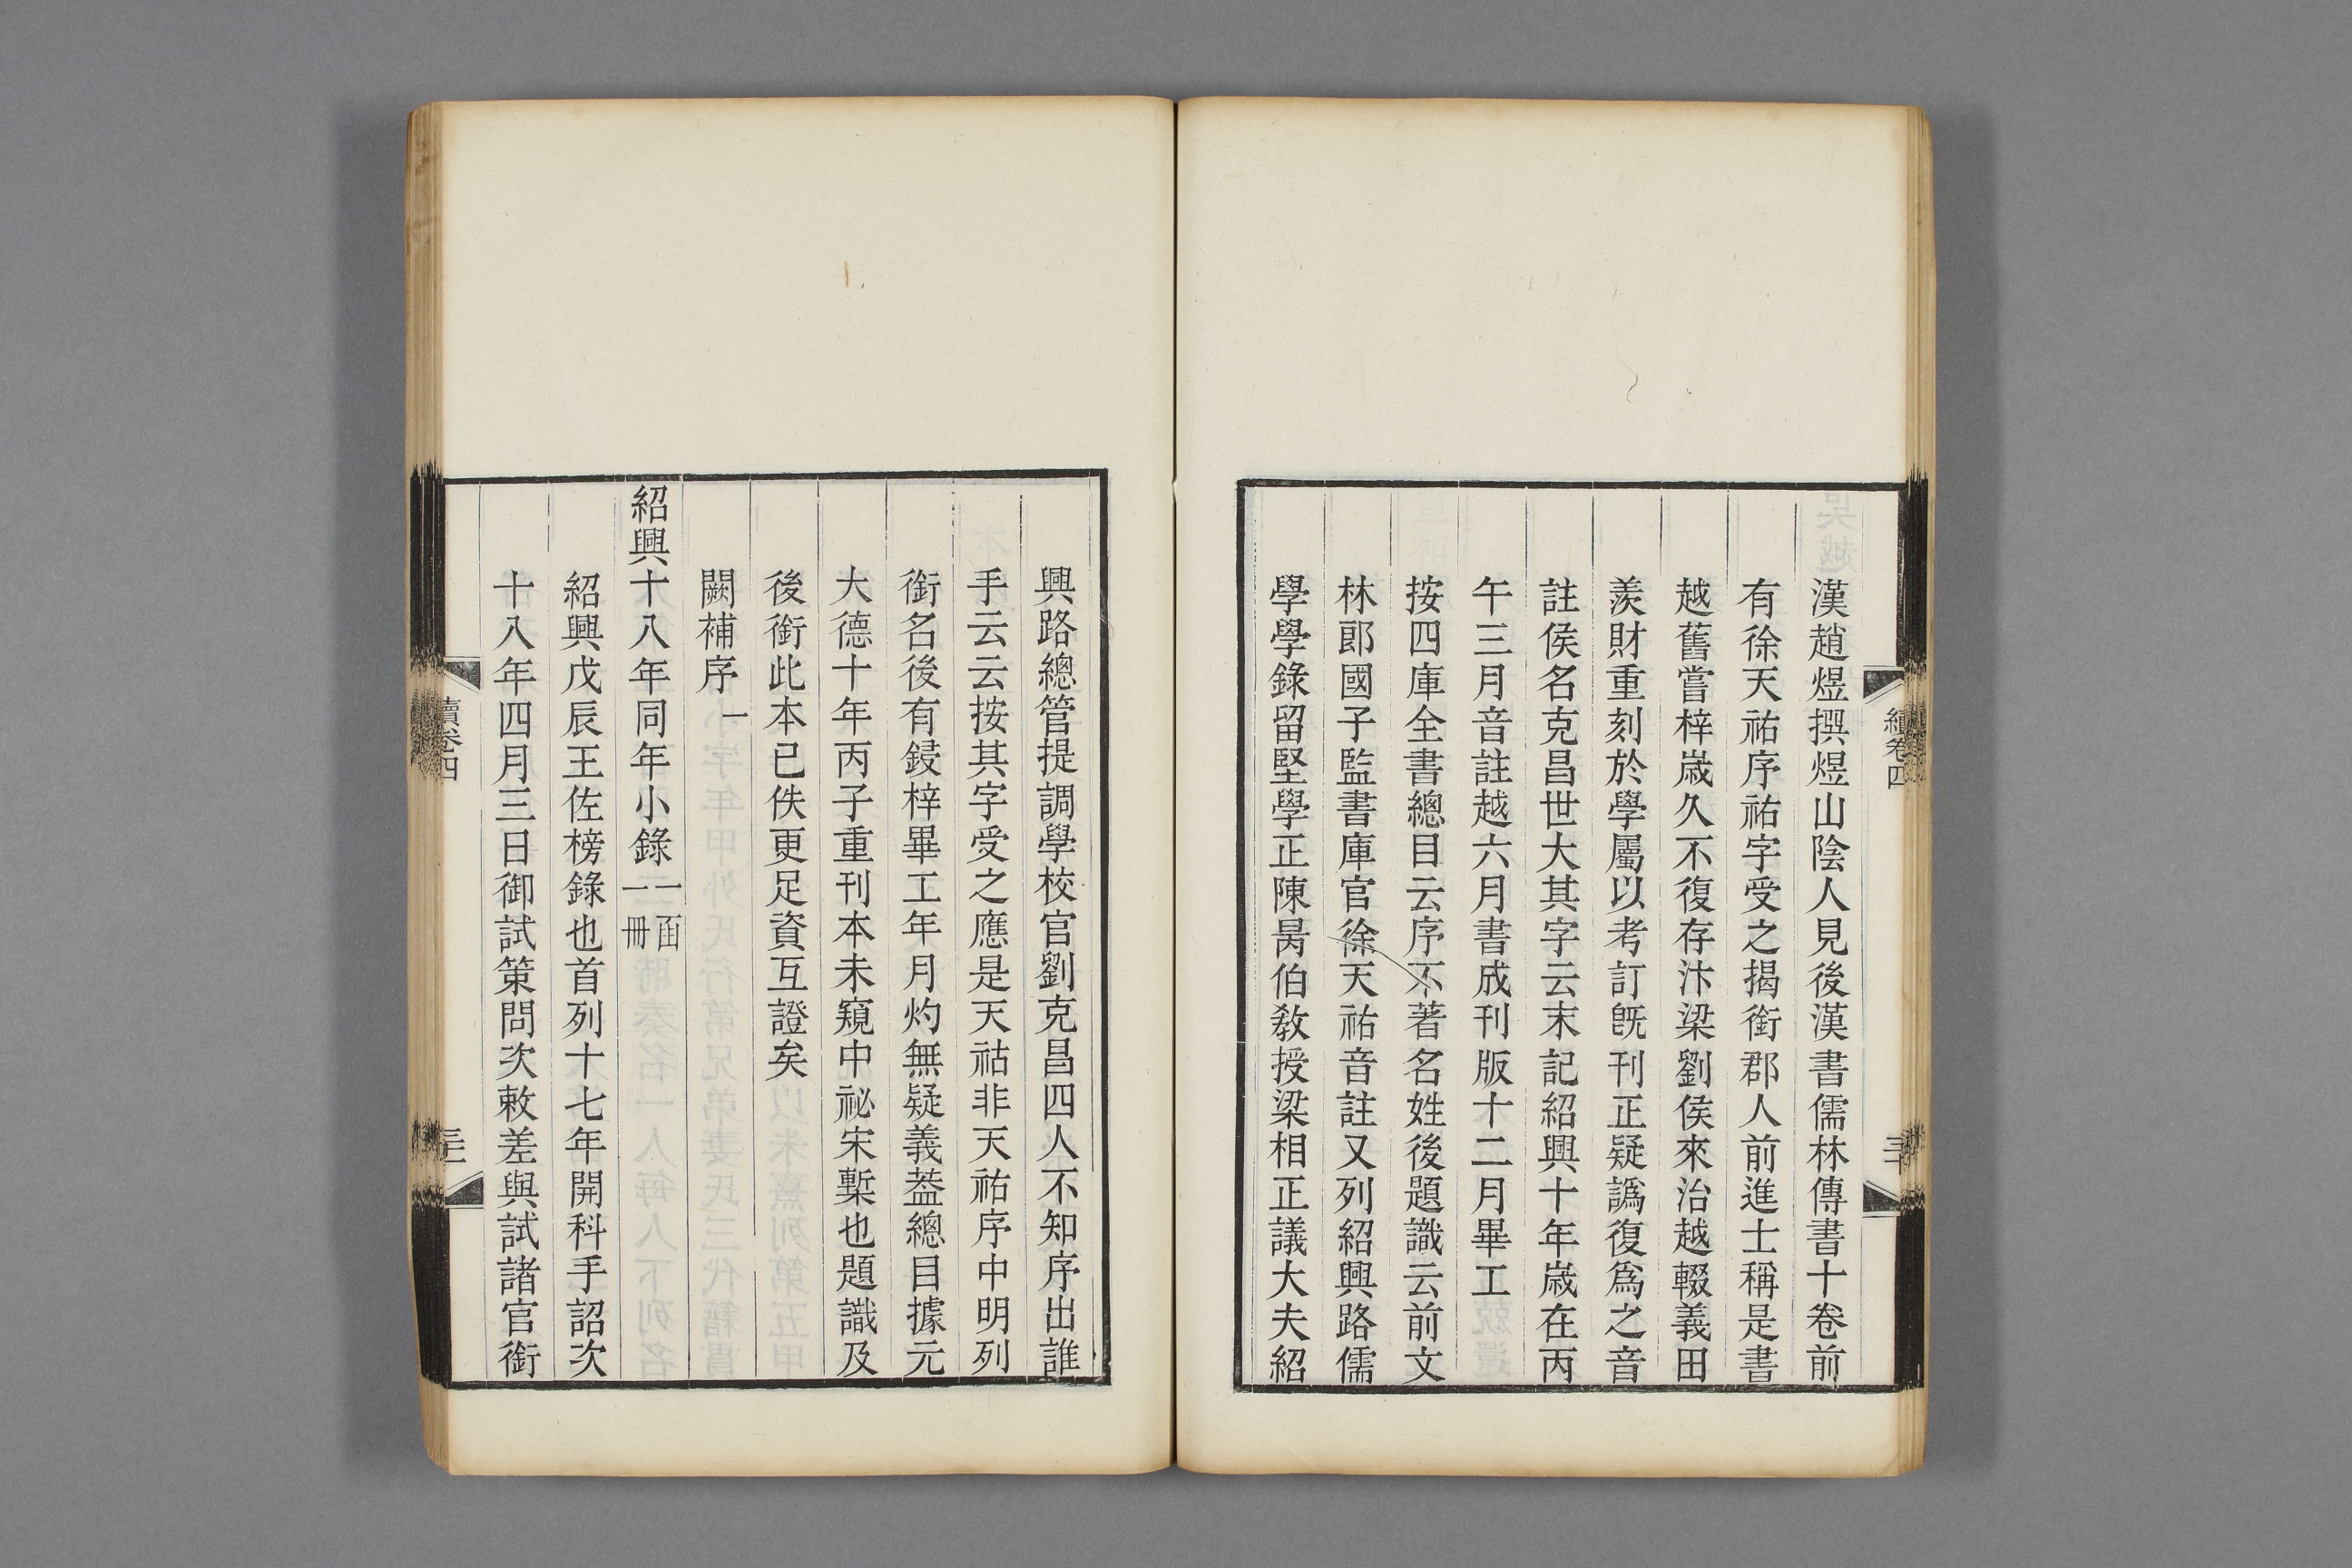 漢趙煜撰煜山陰人見後漢書儒林傳書十卷前
有徐天祐序祐字受之揭銜郡人前進士稱是書
越舊嘗梓歲久不復存汴梁劉侯來治越輟義田
羨財重刻於學屬以考訂旣刊正疑譌復爲之音
註侯名克昌世大其字云末記紹興十年歲在丙
午三月音註越六月書成刊版十二月畢工
按四庫全書總目云序不著名姓後題識云前文
林郎國子監書庫官徐天祐音註又列紹興路儒
學學錄留堅學正陳昺伯敎授梁相正議大夫紹
續卷四
三十
興路總管提調學校官劉克昌四人不知序出誰
手云云按其字受之應是天祜非天祐序中明列
銜名後有鋟梓畢工年月灼無疑義葢總目據元
大德十年丙子重刊本未窺中祕宋槧也題識及
後銜此本已佚更足資互證矣
闕補序一
紹興十八年同年小錄一函一冊
紹興戊辰王佐榜錄也首列十七年開科手詔次
十八年四月三日御試策問次敕差與試諸官銜
續卷四